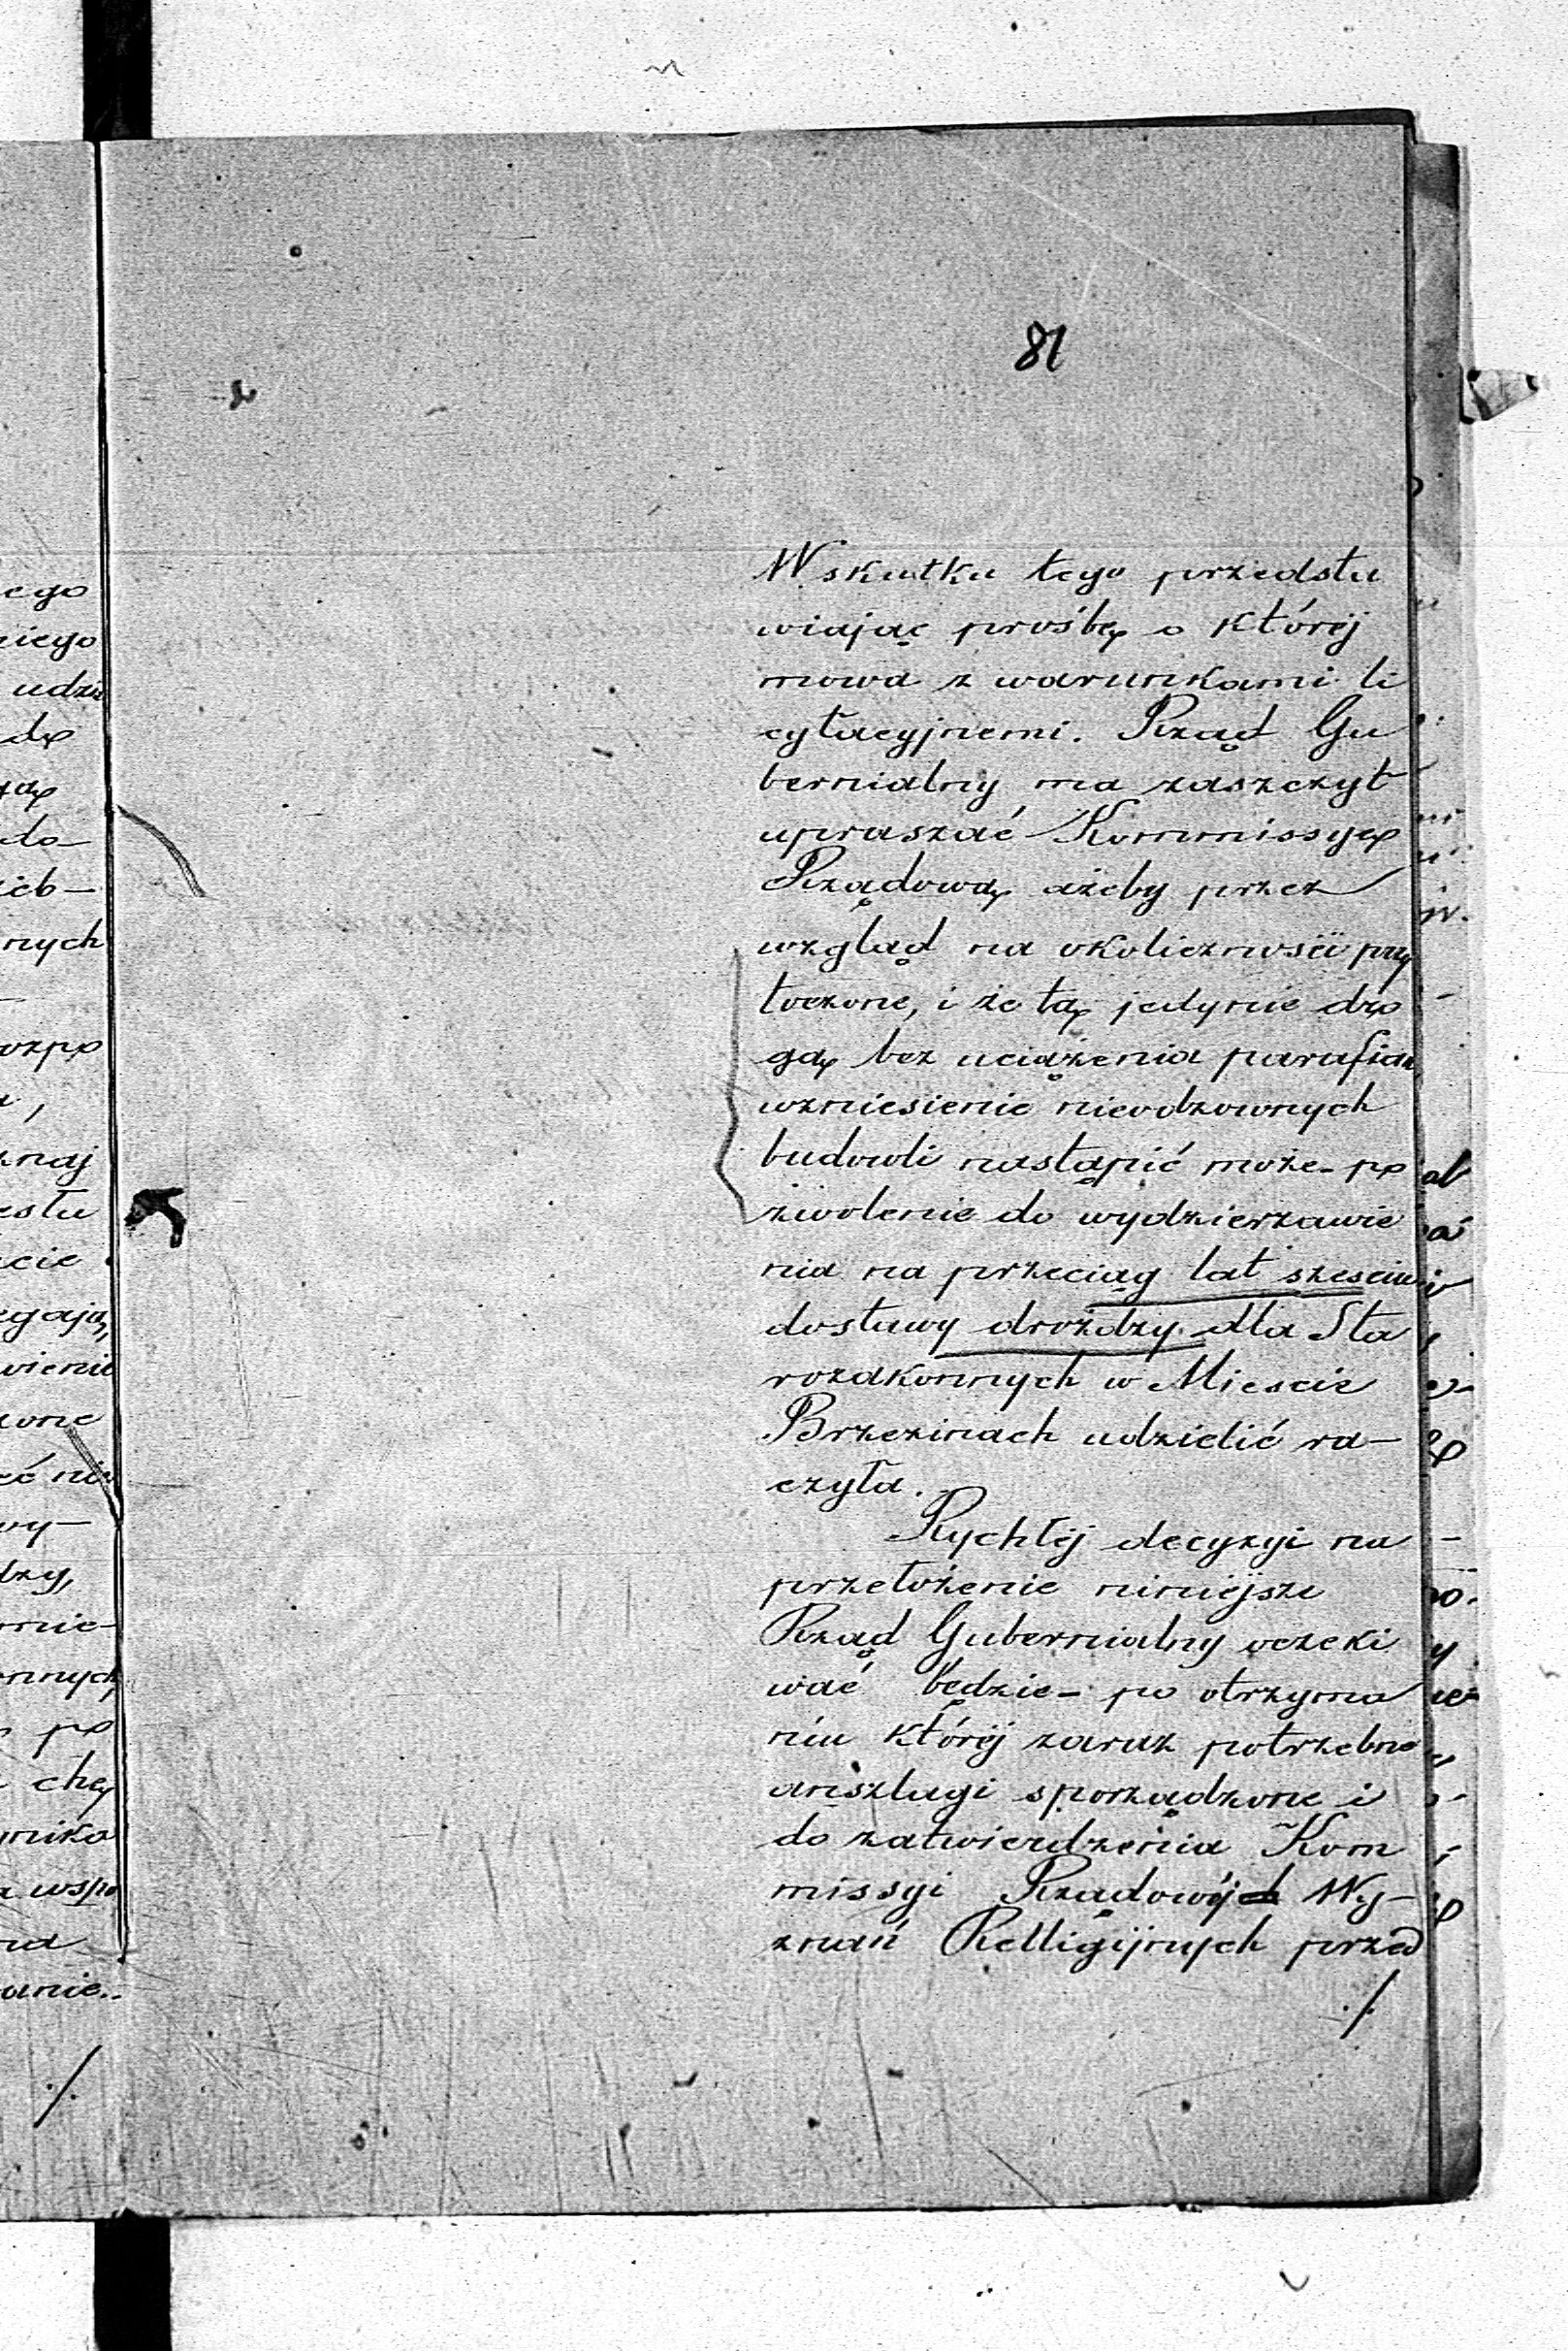 81
W skutku tego przedsta
wiając prośbę o któréj
mowa z warunkami li
cytacyjnemi. Rząd Gu
bernialny ma zaszczyt
upraszać Kommissyę
Rządową ażeby przez
wzgląd na okoliczności przy
toczone, i że tą jedynie dro
gą bez uciążenia parafian
wzniesienie nieodzownych
budowli nastąpić może - po
zwolenie do wydzierzawie
nia na przeciąg lat sześciu
dostawy drożdzy dla Sta
rozakonnych w Mieście
Brzezinach udzielić ra-
czyła.
Rychłéj decyzyi na
przełożenie niniéjsze
Rząd Gubernialny oczeki
wać będzie - po otrzyma
niu któréj zaraz potrzebne
anszlagi sporządzone i
do zatwierdzenia Kom
missyi Rządowéj Wy-
znań Relligijnych przed
./.
ego
niego
udzie
do-
nych
estu
cie
wienie
zone
wy-
mie-
onnych
po
chę
wspo
anie..
./.